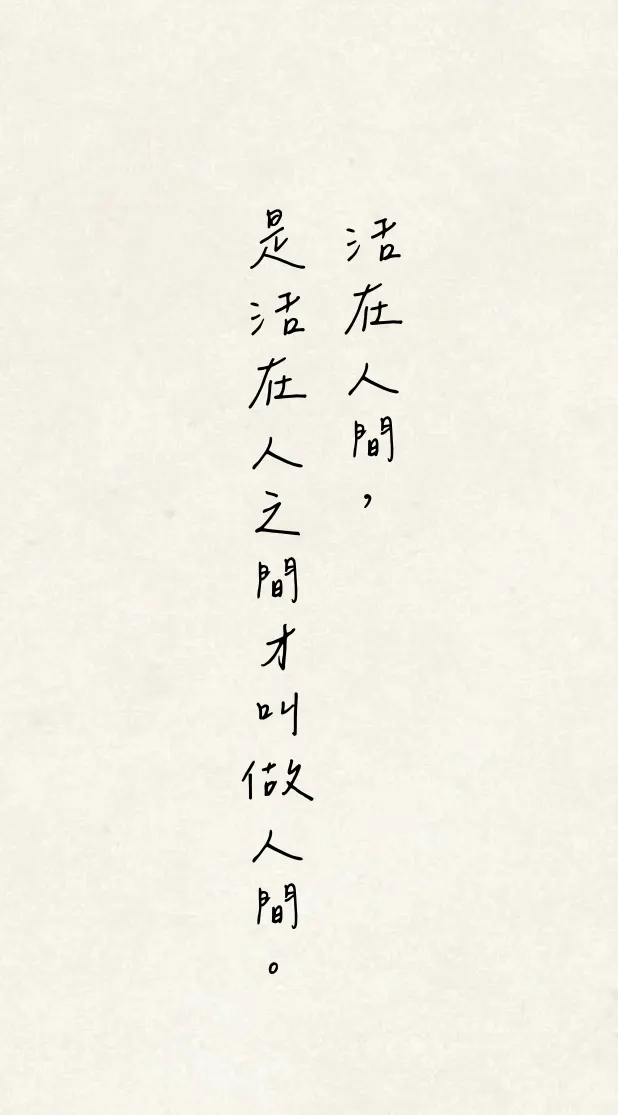 活在人間，
是活在人之間才叫做人間。